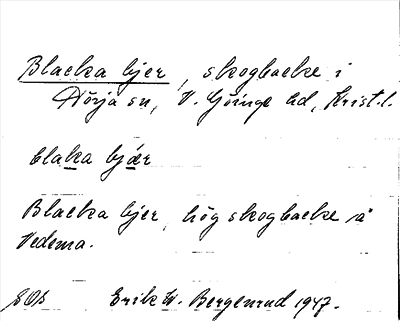 Blacka bjer, skogbacke i
Nörja sn, V. Göinge hd, Krist. l.
blaka bjær
Blacka bjer, hög skogbacke på
Vedema.
Erik W. Bergenrud 1947.